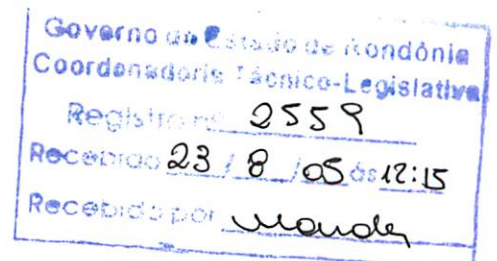 Governo do Estado de Rondônia
Coordenadoria Técnico-Legislativa
Registro nº 2559
Recebido 23 / 8 / 05 às 12:15
Recebido por